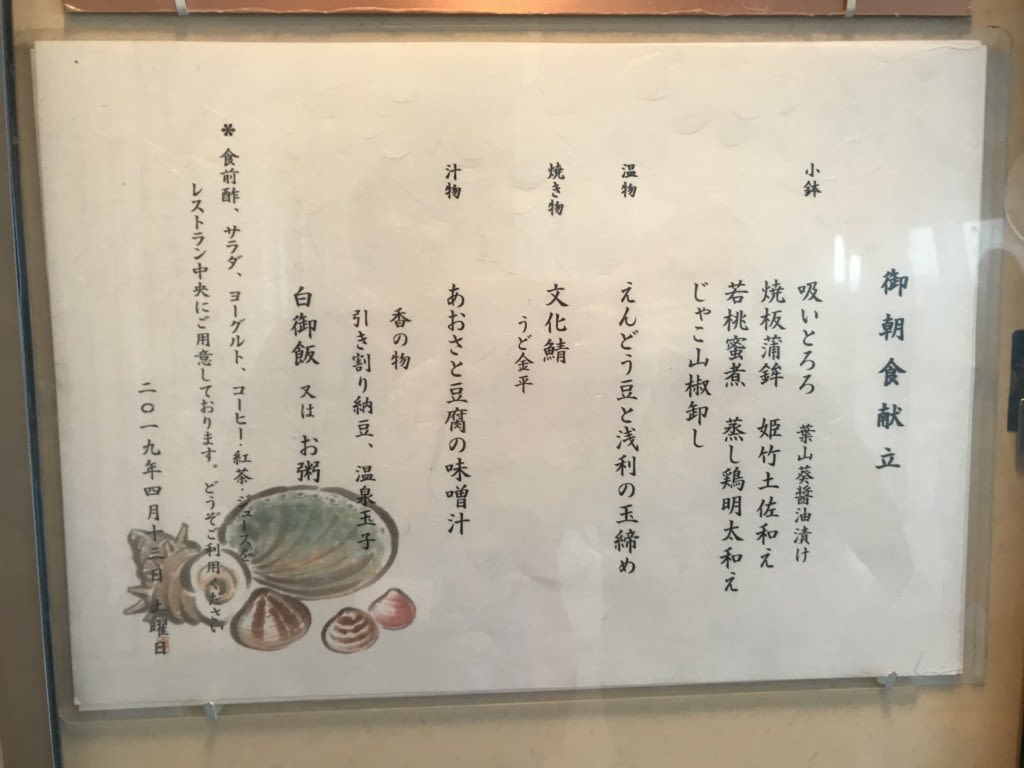 御朝食献立
小鉢 吸いとろろ 葉山葵醤油漬け
焼板蒲鉾 姫竹土佐和え
若桃蜜煮 蒸し鶏明太和え
じゃこ山椒卸し
温物 えんどう豆と浅利の玉締め
焼き物 文化鯖
うど金平
汁物 あおさと豆腐の味噌汁
香の物
引き割り納豆、温泉玉子
白御飯 又は お粥
* 食前酢、サラダ、ヨーグルト、コーヒー・紅茶・ジュースを
レストラン中央にご用意しております。どうぞご利用ください
二〇一九年四月十三日 土曜日